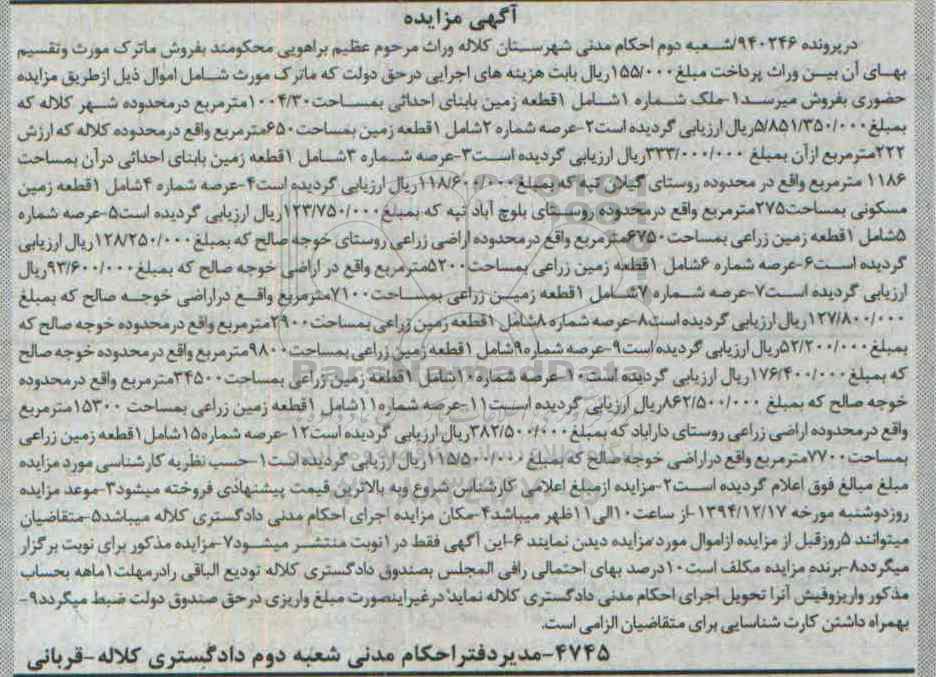 آگهی مزایده
درپرونده ۹۴۰۲۴۶/شعبه دوم احکام مدنی شهرستان کلاله وراث مرحوم عظیم براهویی محکومند بفروش ماترک مورث وتقسیم
بهای آن بین وراث پرداخت مبلغ۱۵۵/۰۰۰ریال بابت هزینه های اجرایی درحق دولت که ماترک مورث شامل اموال ذیل ازطریق مزایده
حضوری بفروش میرسد۱-ملک شماره ۱شامل ۱قطعه زمین بابنای احداثی بمساحت۱۰۰۴/۳۰مترمربع درمحدوده شهر کلاله که
بمبلغ۵/۸۵۱/۳۵۰/۰۰۰ریال ارزیابی گردیده است۲-عرصه شماره ۲شامل ۱قطعه زمین بمساحت۶۵۰مترمربع واقع درمحدوده کلاله که ارزش
۲۲۲مترمربع ازآن بمبلغ ۳۳۳/۰۰۰/۰۰۰ریال ارزیابی گردیده است۳-عرصه شماره ۳شامل ۱قطعه زمین بابنای احداثی درآن بمساحت
۱۱۸۶ مترمربع واقع در محدوده روستای گیلان تپه که بمبلغ۱۱۸/۶۰۰/۰۰۰ریال ارزیابی گردیده است۴-عرصه شماره ۴شامل ۱قطعه زمین
مسکونی بمساحت۲۷۵مترمربع واقع درمحدوده روستای بلوچ آباد تپه که بمبلغ۱۲۳/۷۵۰/۰۰۰ریال ارزیابی گردیده است۵-عرصه شماره
۵شامل ۱قطعه زمین زراعی بمساحت۶۷۵۰مترمربع واقع درمحدوده اراضی زراعی روستای خوجه صالح که بمبلغ۱۲۸/۲۵۰/۰۰۰ریال ارزیابی
گردیده است۶-عرصه شماره ۶شامل ۱قطعه زمین زراعی بمساحت۵۲۰۰مترمربع واقع در اراضی خوجه صالح که بمبلغ۹۳/۶۰۰/۰۰۰ریال
ارزیابی گردیده است۷-عرصه شماره ۷شامل ۱قطعه زمین زراعی بمساحت۷۱۰۰مترمربع واقع دراراضی خوجه صالح که بمبلغ
۱۲۷/۸۰۰/۰۰۰ریال ارزیابی گردیده است۸-عرصه شماره ۸شامل ۱قطعه زمین زراعی بمساحت۲۹۰۰مترمربع واقع درمحدوده خوجه صالح که
بمبلغ۵۲/۲۰۰/۰۰۰ریال ارزیابی گردیده است۹-عرصه شماره۹شامل ۱قطعه زمین زراعی بمساحت۹۸۰۰مترمربع واقع درمحدوده خوجه صالح
که بمبلغ ۱۷۶/۴۰۰/۰۰۰ریال ارزیابی گردیده است۱۰-عرصه شماره۱۰شامل ۱قطعه زمین زراعی بمساحت۳۴۵۰۰مترمربع واقع درمحدوده
خوجه صالح که بمبلغ ۸۶۲/۵۰۰/۰۰۰ریال ارزیابی گردیده است۱۱-عرصه شماره۱۱شامل ۱قطعه زمین زراعی بمساحت ۱۵۳۰۰مترمربع
واقع درمحدوده اراضی زراعی روستای داراباد که بمبلغ۳۸۲/۵۰۰/۰۰۰ریال ارزیابی گردیده است۱۲-عرصه شماره۱۵شامل۱قطعه زمین زراعی
بمساحت۷۷۰۰مترمربع واقع دراراضی خوجه صالح که بمبلغ ۱۱۵/۵۰۰/۰۰۰ریال ارزیابی گردیده است۱-حسب نظریه کارشناسی مورد مزایده
مبلغ مبالغ فوق اعلام گردیده است۲-مزایده ازمبلغ اعلامی کارشناس شروع وبه بالاترین قیمت پیشنهادی فروخته میشود۳-موعد مزایده
روزدوشنبه مورخه ۱۳۹۴/۱۲/۱۷-از ساعت۱۰الی۱۱ظهر میباشد۴-مکان مزایده اجرای احکام مدنی دادگستری کلاله میباشد۵-متقاضیان
میتوانند ۵روزقبل از مزایده ازاموال مورد مزایده دیدن نمایند ۶-این آگهی فقط در۱نوبت منتشر میشود۷-مزایده مذکور برای نوبت برگزار
میگردد۸-برنده مزایده مکلف است۱۰درصد بهای احتمالی رافی المجلس بصندوق دادگستری کلاله تودیع الباقی رادرمهلت۱ماهه بحساب
مذکور واریزوفیش آنرا تحویل اجرای احکام مدنی دادگستری کلاله نماید درغیراینصورت مبلغ واریزی درحق صندوق دولت ضبط میگردد۹-
بهمراه داشتن کارت شناسایی برای متقاضیان الزامی است.
۴۷۴۵-مدیردفتراحکام مدنی شعبه دوم دادگستری کلاله-قربانی
ParsNamadData